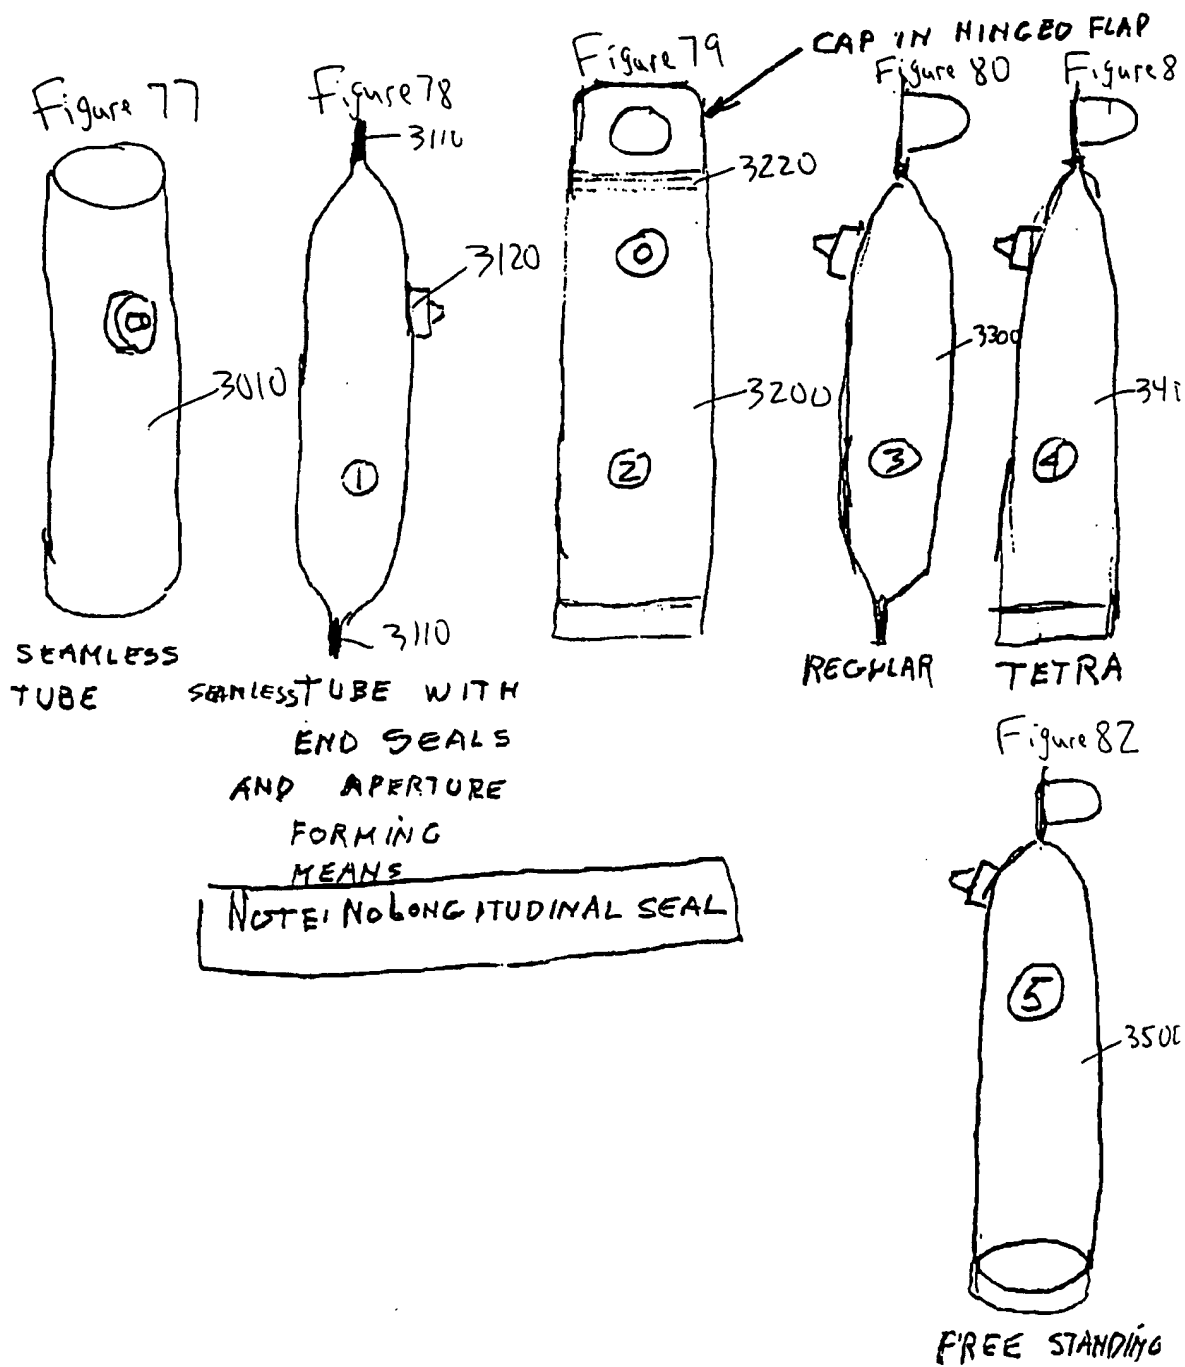 Figure 77
Figure 78
Figure 79
CAP IN HINGED FLAP
Figure 80
Figure 8
3110
3220
3120
0
3010
3200
3300
341
1
2
3
4
3110
SEAMLESS
TUBE
SEAMLESS TUBE WITH
END SEALS
AND APERTURE
FORMING
MEANS
NOTE: NO LONGITUDINAL SEAL
REGULAR
TETRA
Figure 82
5
350
FREE STANDING